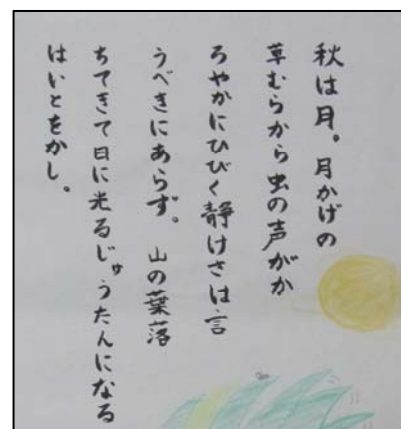 秋は月。月かげの
草むらから虫の声がか
ろやかにひびく静けさは言
うべきにあらず。 山の葉落
ちてきて日に光るじゅうたんになる
はいとをかし。